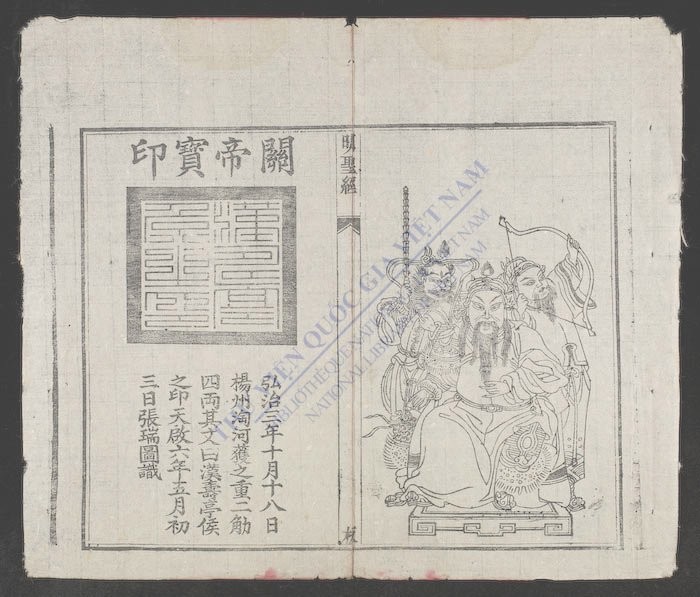 明聖經
關帝寶印
弘治三年十月十八日
楊州淘河獲之重二觔
四兩其文曰漢壽亭侯
之印天啟六年十五月初
三日張瑞圖識
THƯ VIỆN QUỐC GIA VIỆT NAM
BIBLIOTHÈQUE NATIONALE DU VIETNAM
NATIONAL LIBRARY OF VIETNAM